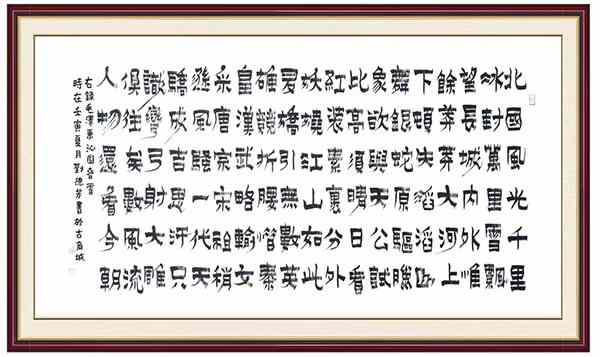 北國風光千里
冰封萬里雪飄
望長城內外惟
餘莽莽大河上
下頓失滔滔山
舞銀蛇原驅臘
象欲與天公試
比高須晴日看
紅裝素裹分外
妖嬈江山如此
多嬌引無數英
雄競折腰惜秦
皇漢武略輸文
采唐宗宋祖稍
遜風騷一代天
驕成吉思汗只
識彎弓射大雕
俱往矣數風流
人物還看今朝
右錄毛澤東沁園春雪
時在壬寅夏月劉德芳書於古城